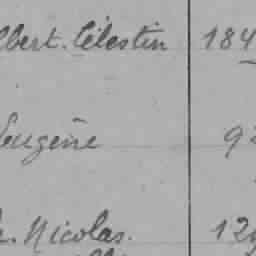 lbert. Célestin 184
Eugène 9
Nicolas. 12